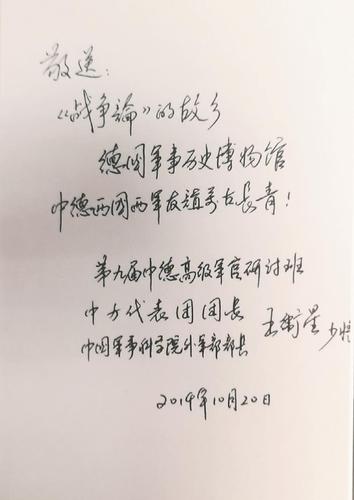 敬送：
《战争論》的故乡
德国军事历史博物馆
中德两国两军友谊万古長青！
第九届中德高级军官研讨班
中方代表团团長
中国军事科学院外军部部長
王衛星 少将
2014年10月20日